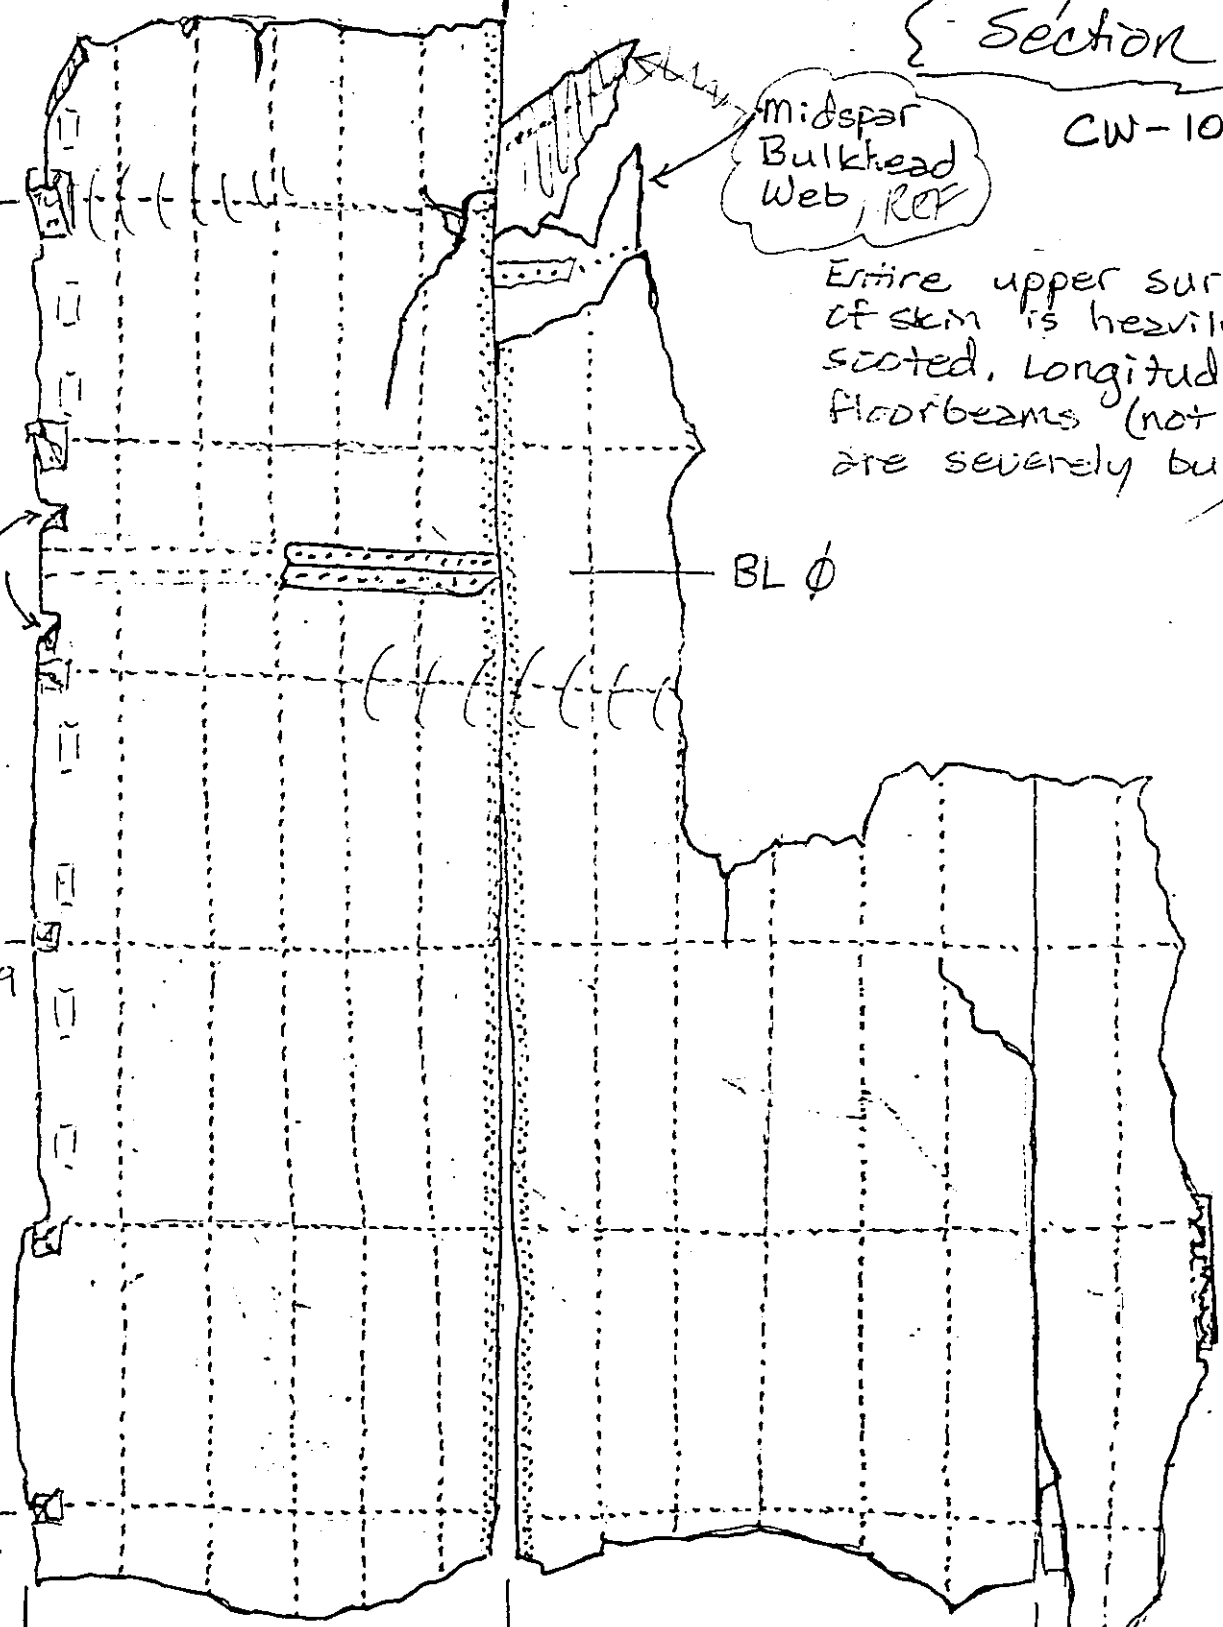 Section
CW-10
Midspar
Bulkhead
Web, REF
Entire upper sur
of skin is heavil
sooted. Longitud
floorbeams (not
are severely bu
BL Ø
9